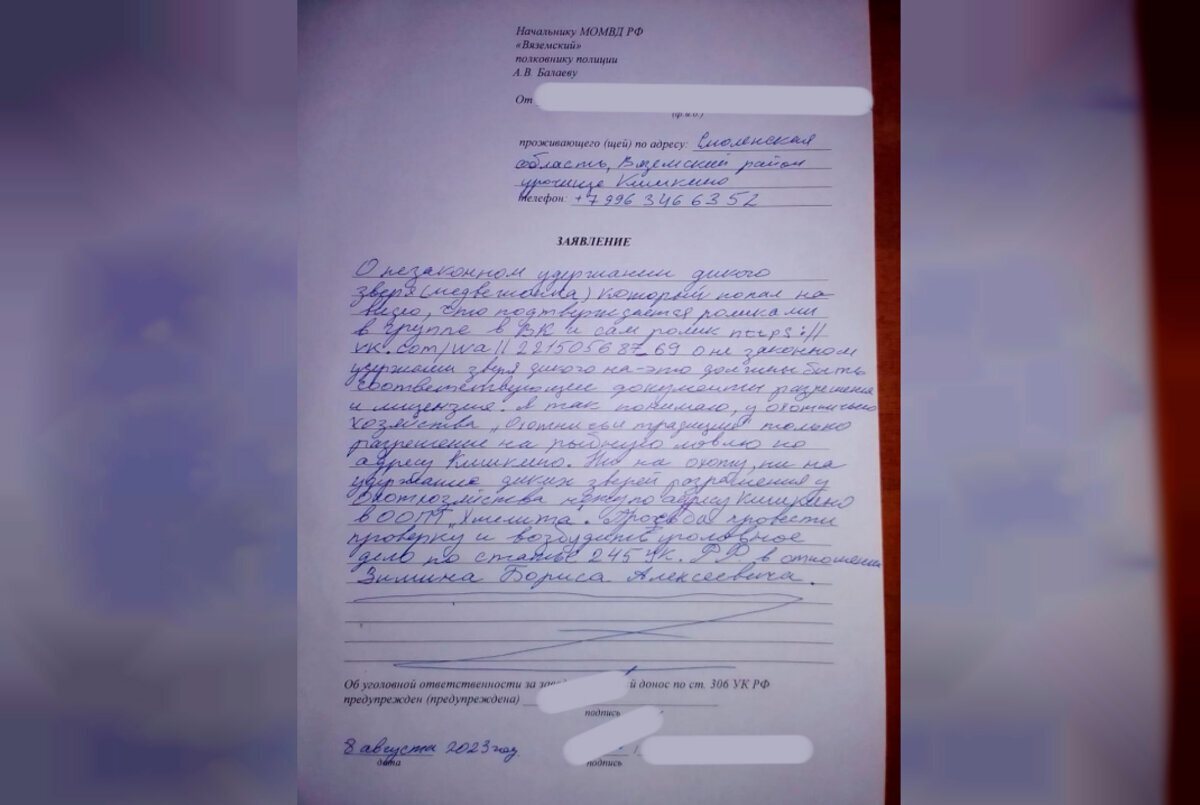 Начальнику МОМВД РФ
«Вяземский»
полковнику полиции
А.В. Балаеву
От
(ф.и.о.)
проживающего (щей) по адресу: Смоленская
область, Вяземский район
урочище Кишкино
телефон: +7 996 346 63 52
ЗАЯВЛЕНИЕ
О незаконном удержании дикого
зверя (медвежонка) который попал на
видео, это подтверждается роликами
в группе в ВК и сам ролик https://
vk.com/wall 221505687_69 о не законном
удержании зверя дикого на это должны быть
соответствующие документы разрешения
и лицензия. Я так понимаю, у охотничьего
хозяйства „Охотничьи традиции" только
разрешение на рыбную ловлю по
адресу Кишкино. Ни на охоту, ни на
удержание диких зверей разрешения у
Охотхозяйства нету по адресу Кишкино
в ООПТ „Хмелита". Просьба провести
проверку и возбудить уголовное
дело по статье 245 УК. РФ. в отношении
Зимина Бориса Алексеевича.
Об уголовной ответственности за донос по ст. 306 УК РФ
предупрежден (предупреждена)
подпись
8 августа 2023 год.
дата подпись